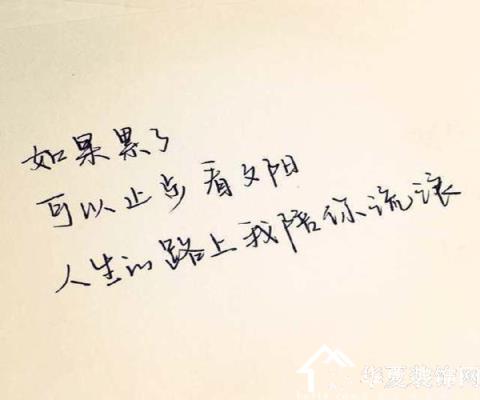 如果累了
可以止步看夕阳
人生的路上我陪你流浪
华夏装饰网